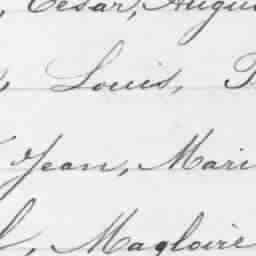 , César, Augu
, Louis,
Jean, Mari
, Magloire